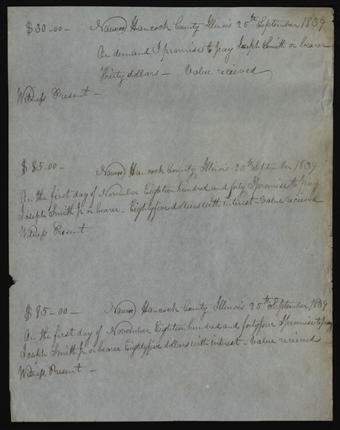 $30-00- Nauvoo Hancock County Illinois 25th September 1839
On demand I promise to pay Joseph Smith or bearer
Thirty dollars - Value received
Witness Present -
$85.00 - Nauvoo Hancock County Illinois 25th September 1839
On the first day of November Eighteen hundred and forty I promise to pay
Joseph Smith Jr or bearer - Eighty five dollars with interest - Value received
Witness Present
$85-00- Nauvoo Hancock County Illinois 25th September 1839
On the first day of November Eighteen hundred and forty four I promise to pay
Joseph Smith Jr or bearer Eighty five dollars with interest - Value received
Witness Present -